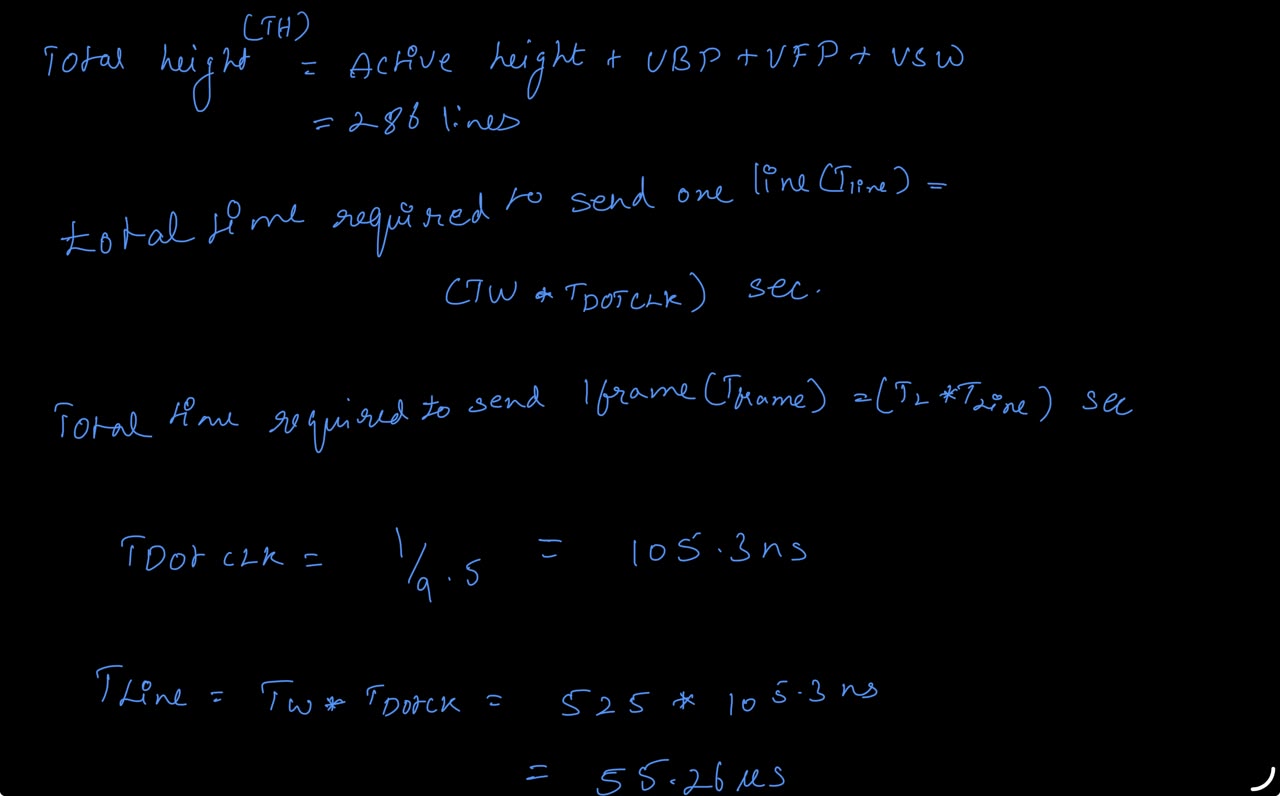 Total height (TH) = Active height + VBP + VFP + VSW
= 286 lines
total time required to send one line (Tline) =
(TW * TDOTCLK) sec.
Total time required to send 1 frame (Tframe) = (TL * TLine) sec
TDOt CLK = 1/9.5 = 105.3 ns
TLine = TW * TDOtCK = 525 * 105.3 ns
= 55.26 us